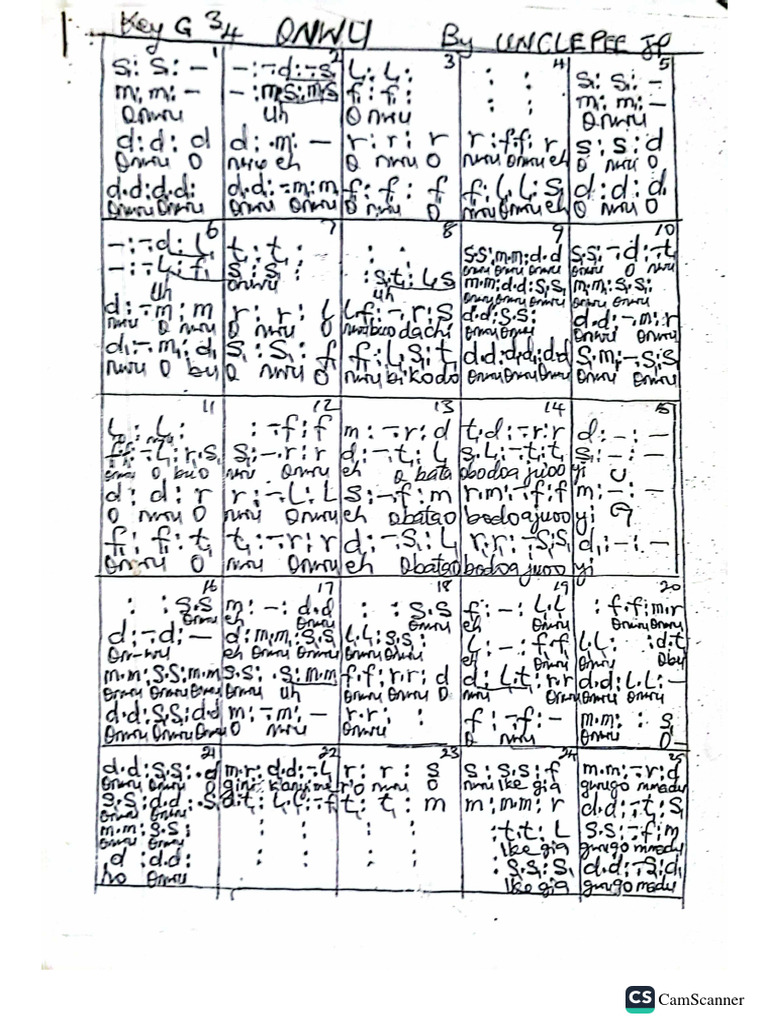 Key G 3/4 ONWU By UNCLEPEE Jp
1 2 3 4 5
s: s: – | –:–.d:–.s | l: l: | : : | s: s: –
m: m: – | –:m s:m s | f: f: | : : | m: m: –
Onwu | Uh | O nwu | Onwu
d: d: d | d: .m: – | r: r: r | r: f.f: r | s: s: d
Onwu O | nwu eh | O nwu O | nwu Onwu eh | O nwu O
d.d: d.d: | d.d:–.m: m | f: f: f | f: l.l: s | d: d: d
Onwu Onwu | Onwu Onwu | O nwu O | nwu Onwu eh | O nwu O
6 7 8 9 10
–:–.d: l | t: t: | : : | s.s: m.m: d.d | s.s:–.d:–.t
Onwu Onwu Onwu | Onwu O nwu
–:–.l: f | s: s: | : s.t: l s | m.m: d.d: s.s | m.m: s.s:
Uh | Onwu | uh | Onwu Onwu Onwu | Onwu Onwu
d:–.m: m | r: r: l | l.f:–.r: s | d.d: s.s: | d.d:–.m: r
nwu O nwu | O nwu O | Onwu Onwu | Onwu Onwu
d:–.m: d | s: s: f | f: l.s: t | d.d: d.d: d.d | s.m:–.s: s
nwu O bu | O nwu O | nwu bikodo | Onwu Onwu Onwu | Onwu Onwu
11 12 13 14 15
l: l: | :–.f: f | m:–.r: d | t.d:–.r: r | d:–:–
s:–.r: r | d:–.t: l | s.l:–.t: t | s:–:–
nwu Onwu | eh Obata | obodo ajuoo | yi
d: d: r | r:–.l: l | s:–.f: m | r.m:–.f: f | m:–:–
O nwu O | nwu Onwu | eh Obatao | bodo ajuoo | yi
f: f: t | t:–.r: r | d:–.s: l | r.r:–.s: s | d:–:–
Onwu O | nwu Onwu | eh Obatao | bodo ajuoo | yi
16 17 18 19 20
: : s.s | m:–: d.d | : : s.s | f:–: l.l | : f.f: m.r
Onwu | eh Onwu | Onwu | eh Onwu | Onwu Onwu
d:–.d:– | d: m.m: s.s | l.l: s.s: | l:–: f.f | l.l: : d.t
On-nwu | eh Onwu Onwu | Onwu Onwu | eh Onwu | Onwu Obu
m.m: s.s: m.m | s.s: .s: m.m | f.f: r.r: d | d: l.t: r.r | d.d: l.l:–
Onwu Onwu Onwu | Onwu Uh | Onwu Onwu O | nwu Onwu | Onwu Onwu
d.d: s.s: d.d | m:–.m:– | r.r: : | f:–.f:– | m.m: : s
Onwu Onwu Onwu | O nwu | Onwu | O nwu | Onwu O
21 22 23 24 25
d.d: s.s: .d | m.r: d.d:–.l | r: r: s | s: s.s: f | m.m:–.r: d
Onwu Onwu O | gini kanyi me | r'o nwu O | nwu Ike gia | gwugo mmadu
s.s: d.d: .s | d.t: l.l:–.f | t: t: m | m: m.m: r | d.d:–.t: s
Onwu Onwu
m.m: s.s: | : : | : : | : t.t: l | s.s:–.f: m
Onwu Onwu | Ike gia | gwugo mmadu
d: d.d: | : : | : : | : s.s: s | d.d:–.s: d
ho Onwu | Ike gia | gwugo madu
CS CamScanner